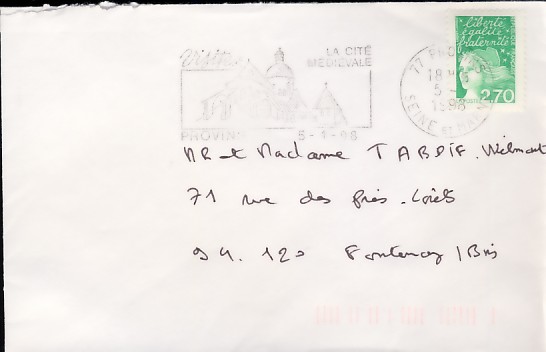 liberté
égalité
fraternité
2,70
Visitez
LA CITÉ
MÉDIÉVALE
PROVINS
5-1-98
77 PRO
18 H
5 -
1998
SEINE ET MARNE
MR et Madame TARDIF.
71 rue des
94.120 Fontenay / Bois